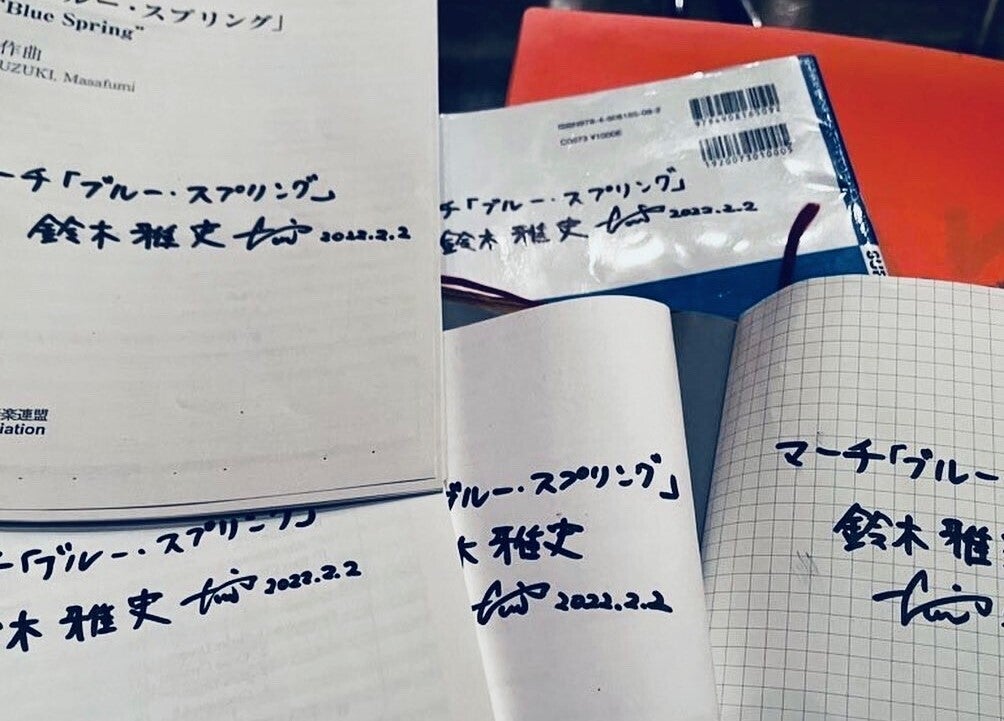 ルー・スプリング」
"Blue Spring"
作曲
UZUKI, Masafumi
ーチ「ブルー・スプリング」
鈴木 雅史 2022.2.2
楽連盟
iation
チ「ブルー・スプリング」
鈴木 雅史 2022.2.2
ー「ブルー・スプリング」
木 雅史 2022.2.2
ブルー・スプリング」
木 雅史
2022.2.2
マーチ「ブルー
鈴木 雅